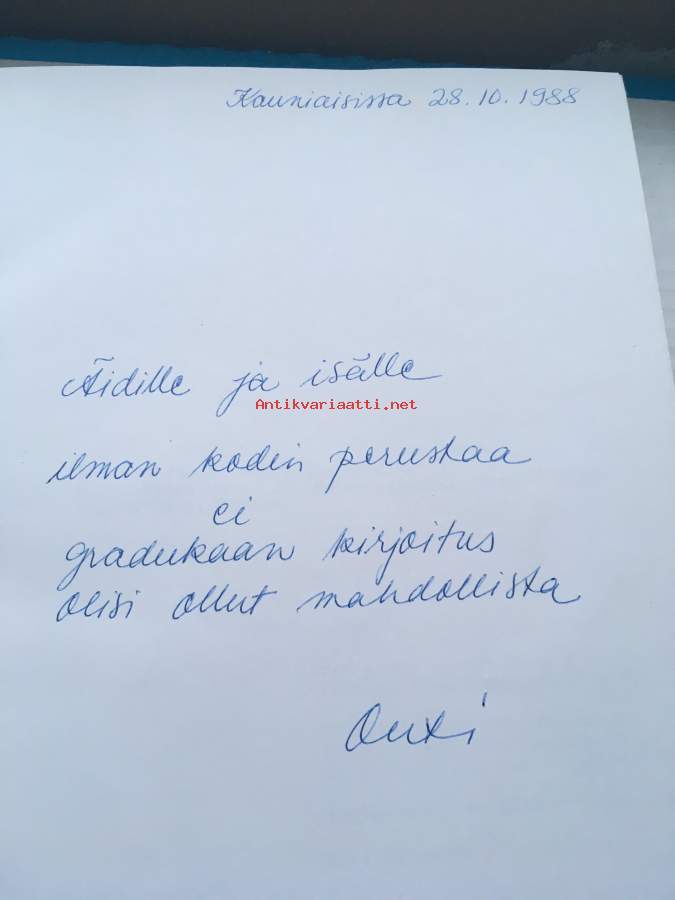 Kauniaisissa 28.10.1988
Äidille ja isälle
Antikvariaatti.net
ilman kodin perustaa
ei
gradukaan kirjoitus
olisi ollut mahdollista
Outi